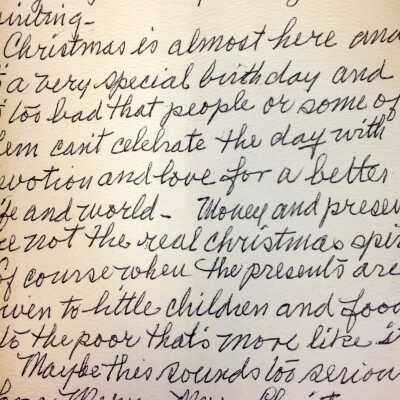 writing-
Christmas is almost here and
a very special birthday and
too bad that people or some of
them can't celebrate the day with
devotion and love for a better
life and world- Money and presen
are not the real christmas spir
Of course when the presents are
given to little children and food
to the poor that's more like it
Maybe this sounds too seriou